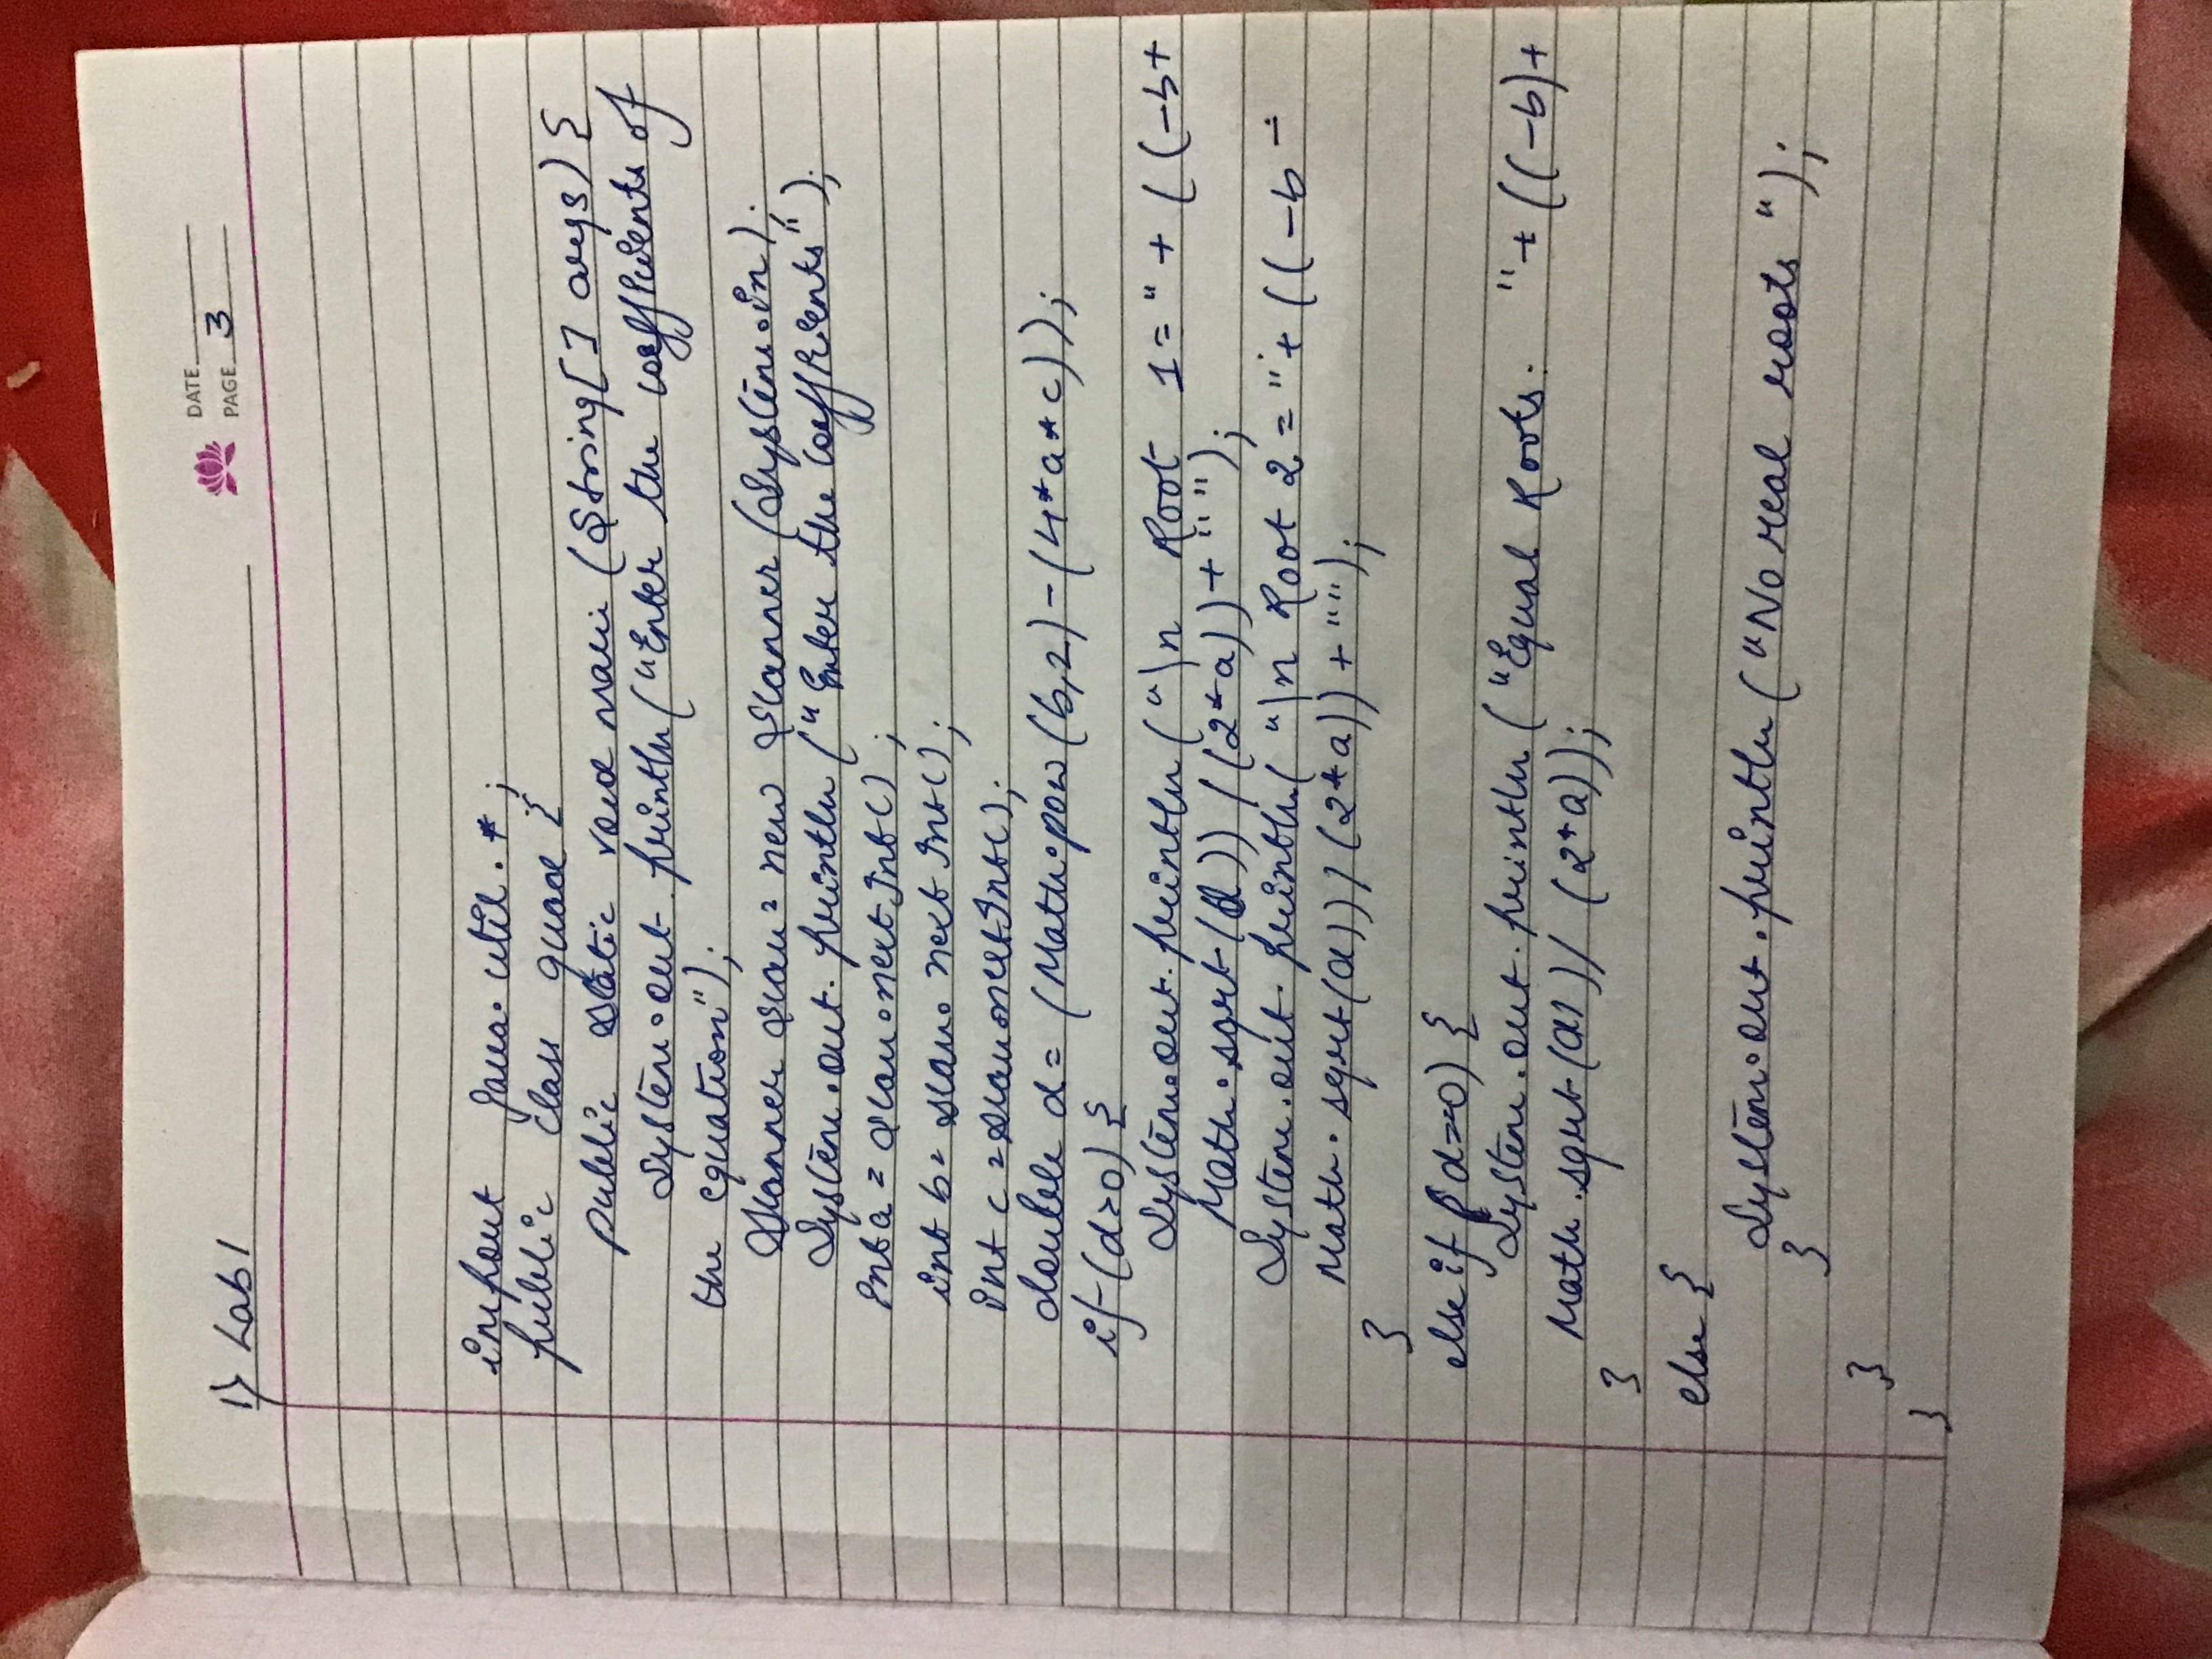 1) Lab 1
DATE
PAGE 3
import java.util.*;
public class quad {
public static void main (String[] args) {
System.out.println("Enter the coefficients of
the equation");
Scanner scan = new Scanner (System.in);
System.out.println ("Enter the coefficients");
int a = scan.nextInt();
int b = scan.nextInt();
int c = scan.nextInt();
double d = (Math.pow(b,2)-(4*a*c));
if (d>0) {
System.out.println ("\n Root 1=" + ((-b+
Math.sqrt(d))/(2*a))+"");
System.out.println("\n Root 2 = "+((-b -
Math.sqrt(d))/(2*a))+"");
}
else if (d==0) {
System.out.println ("Equal Roots: "+((-b)+
Math.sqrt(d))/(2*a));
}
else {
System.out.println ("No real roots");
}
}
}